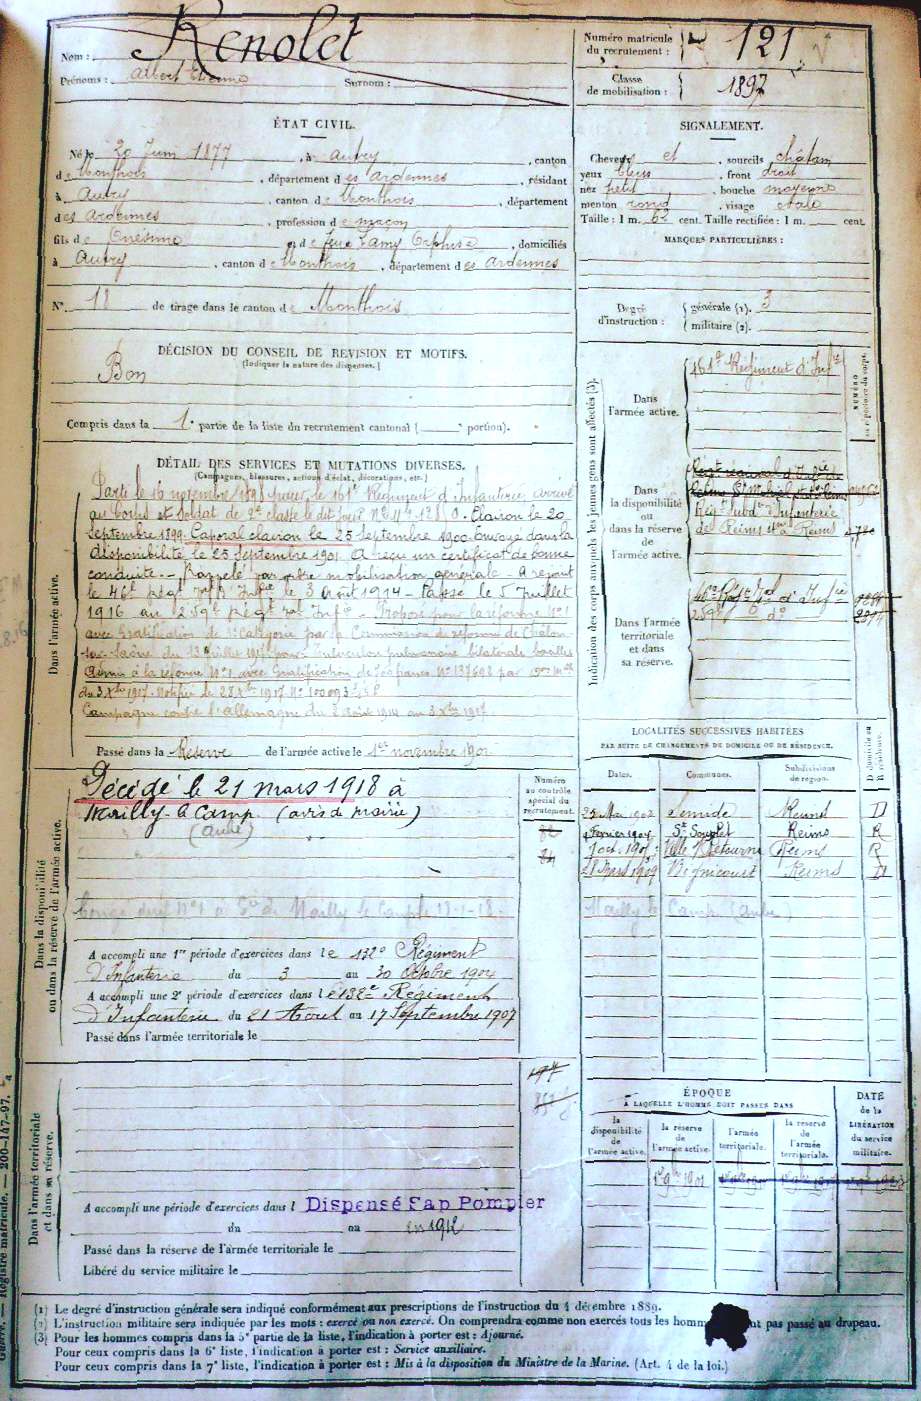 Nom : Renolet
Prénoms : Albert Etienne Surnom :
Numéro matricule du recrutement : 121
Classe de mobilisation : 1897
ÉTAT CIVIL.
Né le 20 Juin 1877, à Autry, canton
de Monthois, département des Ardennes, résidant
à Autry, canton de Monthois, département
des Ardennes, profession de maçon
fils de Onésime et de feue Lamy Orphise, domiciliés
à Autry, canton de Monthois, département des Ardennes
N° 18 de tirage dans le canton de Monthois
SIGNALEMENT.
Cheveux et sourcils châtain
yeux bleus, front droit
nez petit, bouche moyenne
menton rond, visage ovale
Taille : 1 m. 62 cent. Taille rectifiée : 1 m. cent.
MARQUES PARTICULIÈRES :
Degré d'instruction : générale (1). 3
militaire (2).
DÉCISION DU CONSEIL DE REVISION ET MOTIFS.
(Indiquer la nature des dispenses.)
Bon
Compris dans la 1e partie de la liste du recrutement cantonal ( portion).
DÉTAIL DES SERVICES ET MUTATIONS DIVERSES.
(Campagnes, blessures, actions d'éclat, décorations, etc.
Dans l'armée active.
Parti le 16 novembre 1898 pour le 161e Régiment d'Infanterie, arrivé
au Corps et Soldat de 2e classe le dit jour N° Clairon le 20
septembre 1899. Caporal clairon le 25 septembre 1900. Envoyé dans la
disponibilité le 25 Septembre 1901. A reçu un certificat de bonne
conduite. - Rappelé par ordre mobilisation générale - A rejoint
le 46e Régt d'Infie le 3 août 1914 - Passé le 5 Juillet
1916 au 259e Régt d'Infie - Proposé pour la réforme N°1
avec gratification de catégorie par la Commission de réforme de Chalon-
sur-Saône du 13 Juillet 1917 pour: Tuberculose pulmonaire bilatérale bacilles
Admis à la réforme N°1 avec Gratification de francs N° 137692 par
du 3 Xbre 1917. Notifiée le 28 Xbre 1917 N°
Campagne contre l'Allemagne du 2 Août 1914 au 3 Xbre 1917
Passé dans la Réserve de l'armée active le 1er novembre 1901
Indication des corps auxquels les jeunes gens sont affectés (3).
NUMÉRO au répertoire du corps.
Dans l'armée active. 161e Régiment d'Infie
Dans la disponibilité ou dans la réserve de l'armée active.
Régt Subdre Infanterie
de Reims à Reims
Dans l'armée territoriale et dans sa réserve.
46e Régt d'Infie
259e do
LOCALITÉS SUCCESSIVES HABITÉES
PAR SUITE DE CHANGEMENTS DE DOMICILE OU DE RÉSIDENCE.
Dates. Communes. Subdivisions de région. D domicile ou R résidence.
25 Mai 1902 Semide Reims D
Février 1904 St Souplet Reims R
7 oct. 1905 Ville s/ Retourne Reims R
28 Mars 1909 Bignicourt Reims D
Mailly le Camp (Aube)
Dans la disponibilité ou dans la réserve de l'armée active.
Numéro au contrôle spécial du recrutement.
Décédé le 21 mars 1918 à
Mailly-le-Camp (avis de mairie)
(Aube)
A accompli une 1re période d'exercices dans le 132e Régiment
d'Infanterie du 3 au 30 Octobre 1904
A accompli une 2e période d'exercices dans le 132e Régiment
d'Infanterie du 21 Aout au 17 Septembre 1907
Passé dans l'armée territoriale le
Dans l'armée territoriale et dans sa réserve.
A accompli une période d'exercices dans l Dispensé Sap Pompier
du au en 1912
Passé dans la réserve de l'armée territoriale le
Libéré du service militaire le
ÉPOQUE
À LAQUELLE L'HOMME DOIT PASSER DANS
la disponibilité de l'armée active. la réserve de l'armée active. l'armée territoriale. la réserve de l'armée territoriale. DATE de la LIBÉRATION du service militaire.
1er 9bre 1901
(1) Le degré d'instruction générale sera indiqué conformément aux prescriptions de l'instruction du 4 décembre 1889.
(2) L'instruction militaire sera indiquée par les mots : exercé ou non exercé. On comprendra comme non exercés tous les homm nt pas passé au drapeau.
(3) Pour les hommes compris dans la 5e partie de la liste, l'indication à porter est : Ajourné.
Pour ceux compris dans la 6e liste, l'indication à porter est : Service auxiliaire.
Pour ceux compris dans la 7e liste, l'indication à porter est : Mis à la disposition du Ministre de la Marine. (Art. 4 de la loi.)
Guerre. — Registre matricule. — 200-147-97.